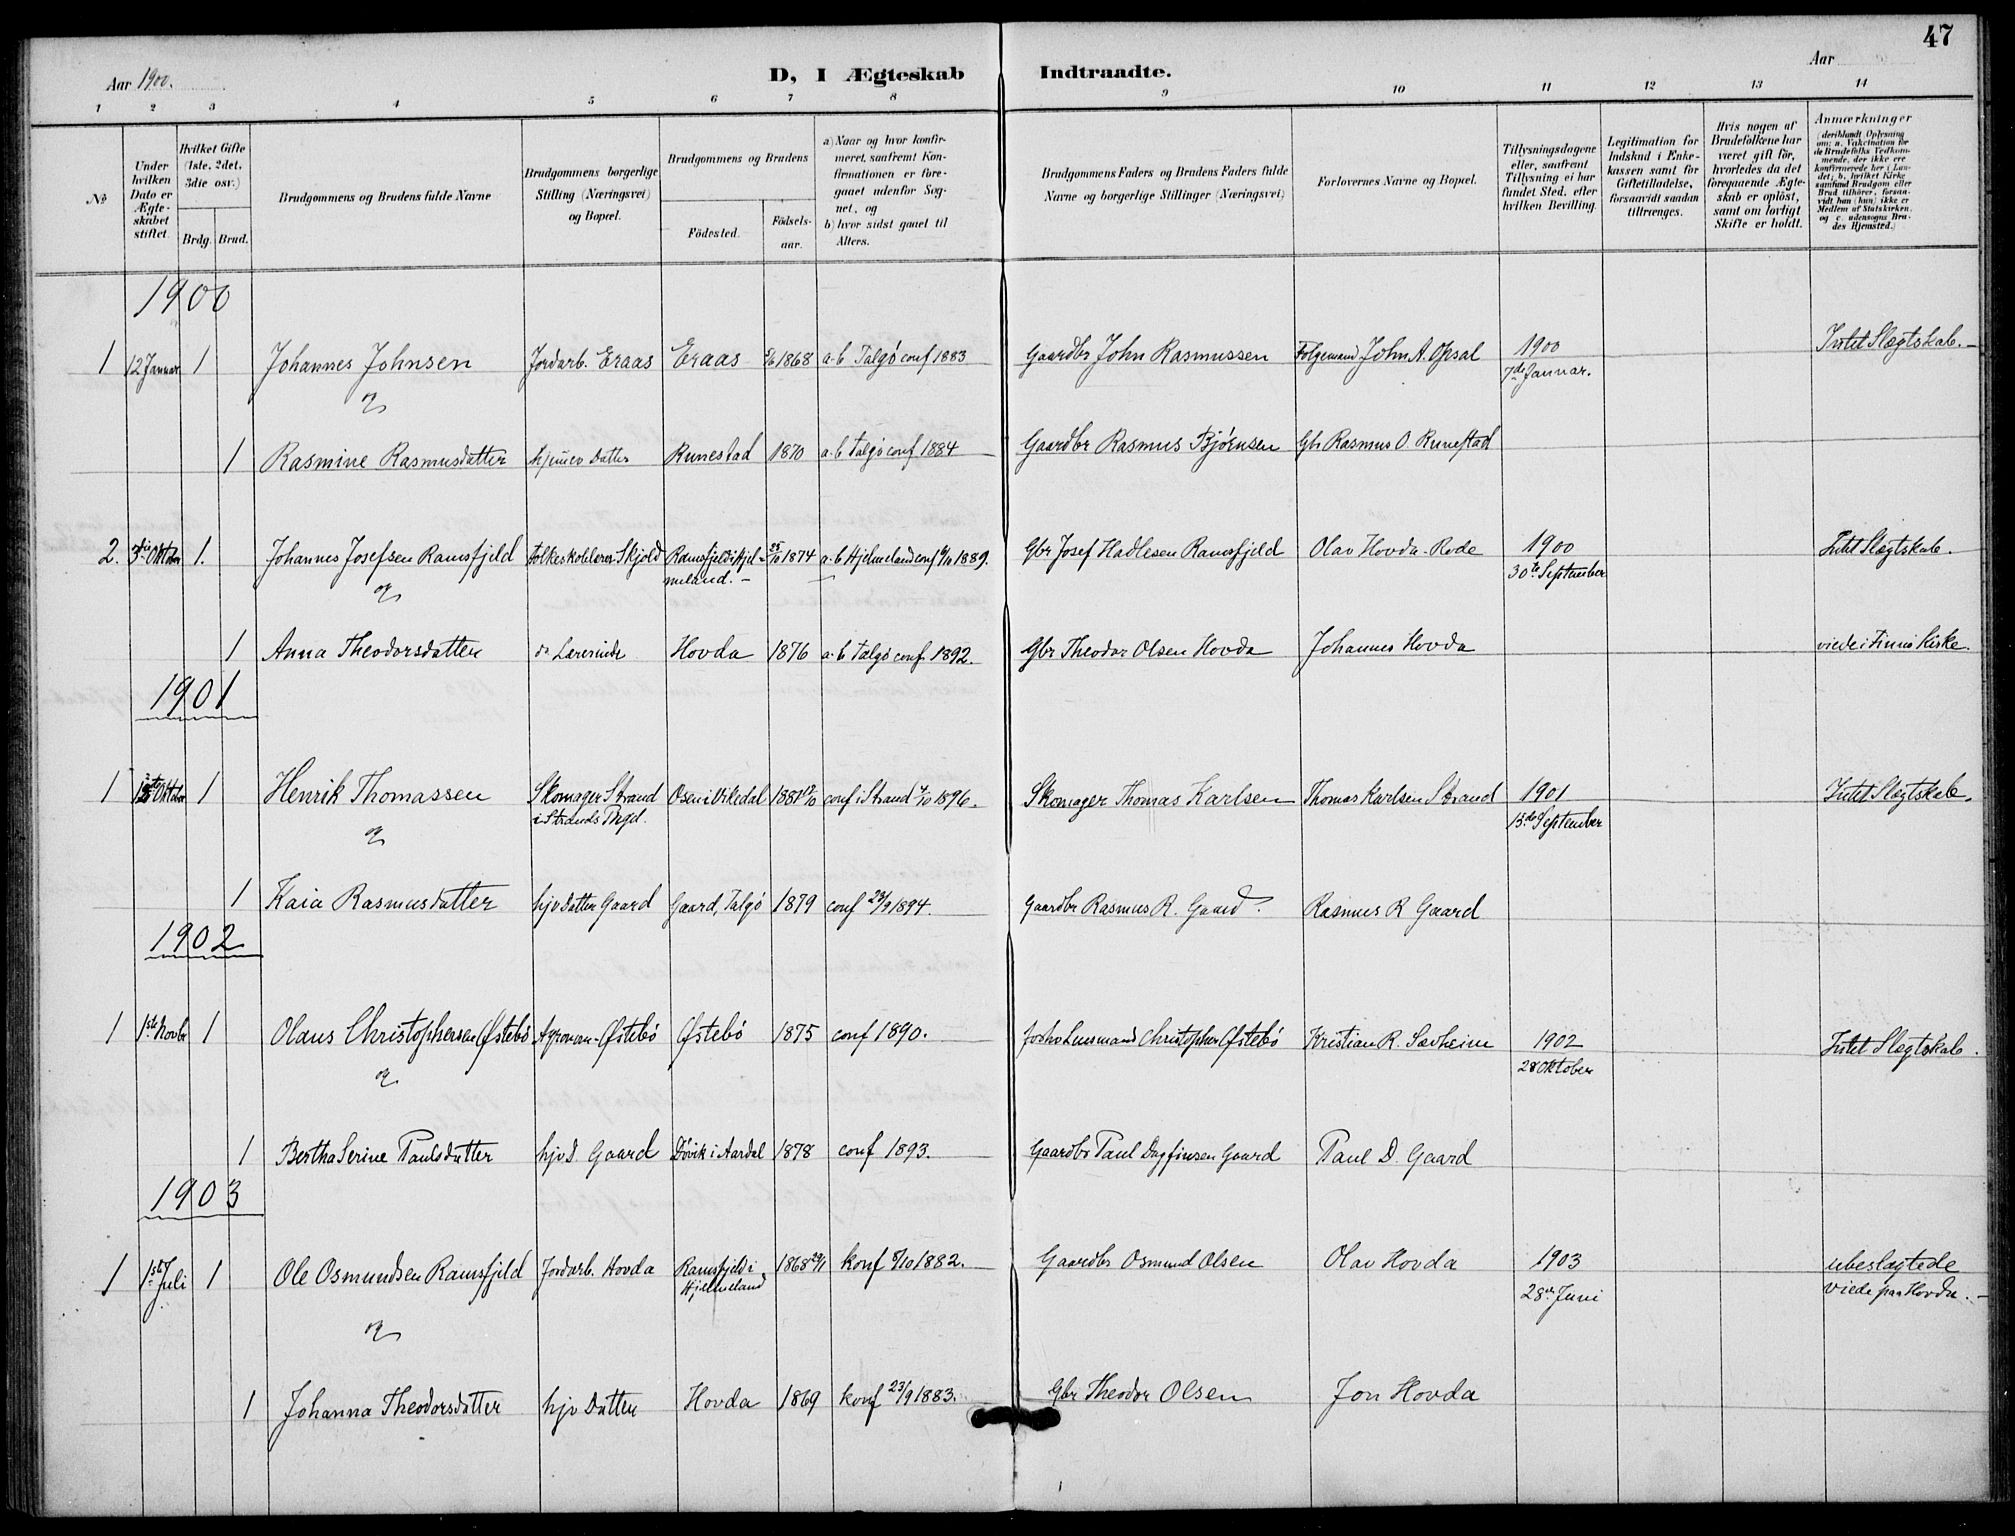 47
Aar 1900.
D, I Ægteskab Indtraadte.
Aar
1 2 3 4 5 6 7 8 9 10 11 12 13 14
No
Under hvilken Dato er Ægteskabet stiftet.
Hvilket Gifte (1ste, 2det, 3die osv.)
Brdg. Brud.
Brudgommens og Brudens fulde Navne
Brudgommens borgerlige Stilling (Næringsvei) og Bopæl.
Brudgommens og Brudens
Födested.
Födselsaar.
a) Naar og hvor konfirmeret, saafremt Konfirmationen er foregaaet udenfor Sognet, og
b) hvor sidst gaaet til Alters.
Brudgommens Faders og Brudens Faders fulde Navne og borgerlige Stillinger (Næringsvei)
Forlovernes Navne og Bopæl.
Tillysningsdagene eller, saafremt Tillysning ei har fundet Sted, efter hvilken Bevilling.
Legitimation for Indskud i Enkekassen samt for Giftetilladelse, forsaavidt saadan tiltrænges.
Hvis nogen af Brudefolkene har været gift för, hvorledes da det foregaaende Ægteskab er oplöst, samt om lovligt Skifte er holdt.
Anmærkninger (deriblandt Oplysning om: a. Vakcination for de Brudefolks Vedkommende, der ikke ere konfirmerede her i Landet; b. hvilket Kirkesamfund Brudgom eller Brud tilhörer, forsaavidt han (hun) ikke er Medlem af Statskirken, og c. udensogns Brudes Hjemsted.)
1900
1 12 Januar 1 Johannes Johnsen Jordarb. Eraas Eraas 1868 a-b Talgö conf 1883 Gaardbr John Rasmussen Folgemand John A. Opsal 1900 Intet Slægtskab.
7de Januar.
og
1 Rasmine Rasmusdatter Datter Runestad 1870 a-b Talgö conf 1884 Gaardbr Rasmus Bjørnsen Gbr Rasmus O. Runestad
2. 3die Oktober 1. Johannes Josefsen Ramsfjeld Folkeskolelærer Skjold Ramsfjeld i Hjelmeland. 25/10 1874 a-b Hjelmeland conf 6/10 1889. Gbr Josef Hadlesen Ramsfjeld Olav Hovda-Rode 1900 Intet Slægtskab.
30te September
og
1 Anna Theodorsdatter do Lærerinde Hovda 1876 a-b Talgö conf 1892. Gbr Theodor Olsen Hovda Johannes Hovda viede i Finnö Kirke.
1901
1 Oktober 1 Henrik Thomassen Skomager Strand Osen i Vikedal 1881 conf i Strand 1896. Skomager Thomas Karlsen Thomas Karlsen Strand 1901 Intet Slægtskab.
i Strands Prgd.
15de September
og
1 Kaia Rasmusdatter hjv Datter Gaard Gaard, Talgö 1879 conf 23/9 1894. Gaardbr Rasmus R. Gaard. Rasmus R Gaard
1902
1 1ste Novbr 1 Olaus Christophersen Østebö Agronom-Østebö Østebö 1875 conf 1890. Lensmand Christopher Østebö Kristian R. Sævheim 1902 Intet Slægtskab.
28 Oktober
og
1 Bertha Serine Paulsdatter hjv D. Gaard Døvik i Aardal 1878 conf 1893. Gaardbr Paul Dagfinsen Gaard Paul D. Gaard
1903
1 1ste Juli 1 Ole Osmundsen Ramsfjeld Jordarb. Hovda Ramsfjeld i Hjelmeland 1868 29/1 konf 8/10 1882. Gaardbr Osmund Olsen Olav Hovda 1903 ubeslægtede
28de Juni viede paa Hovda.
og
1 Johanna Theodorsdatter hjv Datter Hovda 1869 konf 23/9 1883. Gbr Theodor Olsen Jon Hovda